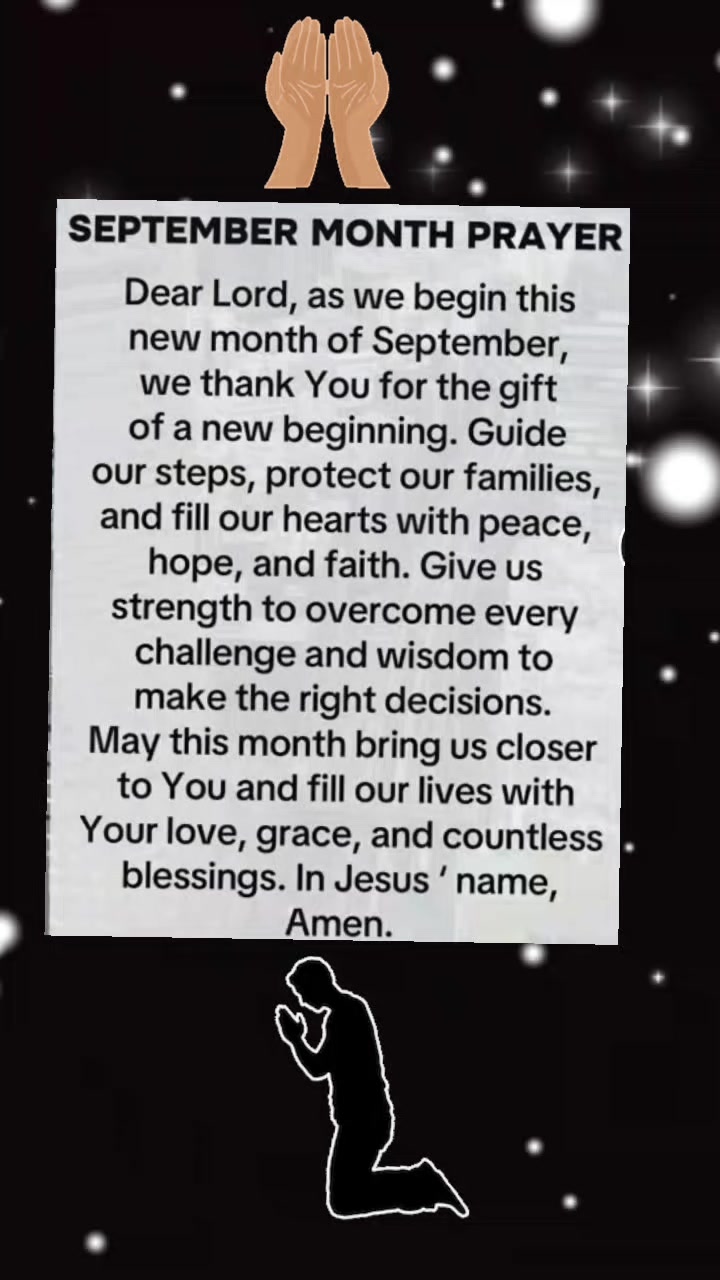 SEPTEMBER MONTH PRAYER
Dear Lord, as we begin this
new month of September,
we thank You for the gift
of a new beginning. Guide
our steps, protect our families,
and fill our hearts with peace,
hope, and faith. Give us
strength to overcome every
challenge and wisdom to
make the right decisions.
May this month bring us closer
to You and fill our lives with
Your love, grace, and countless
blessings. In Jesus ' name,
Amen.